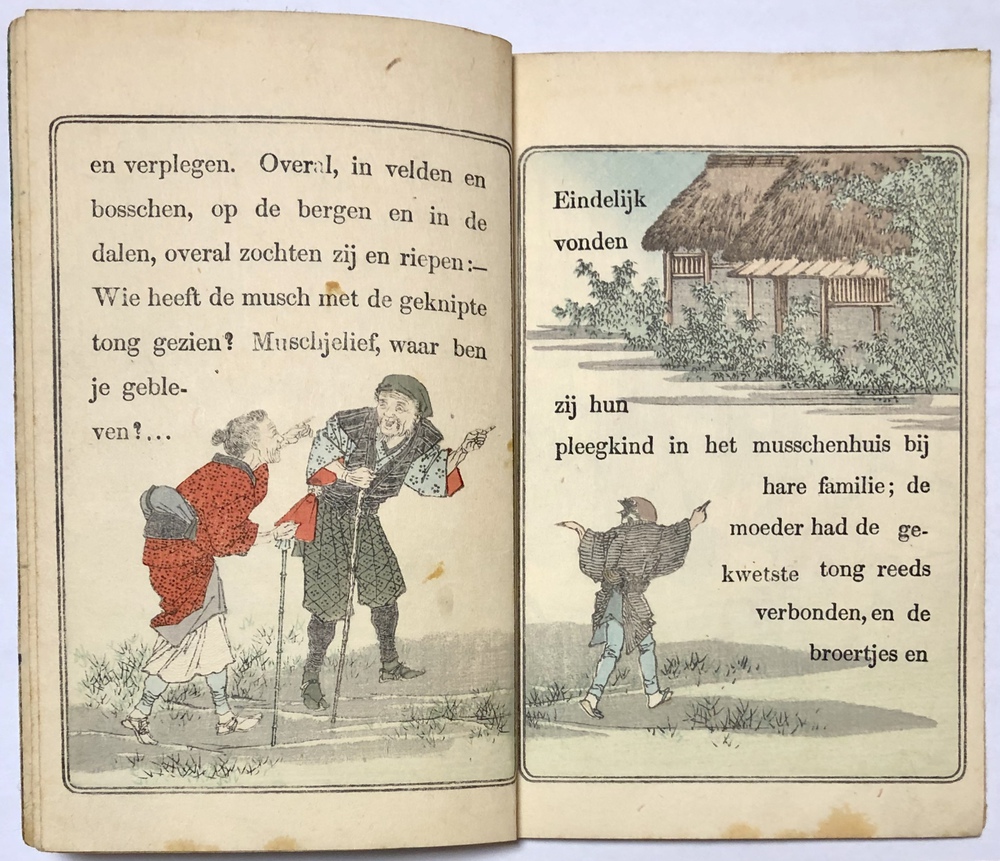 en verplegen. Overal, in velden en
bosschen, op de bergen en in de
dalen, overal zochten zij en riepen:—
Wie heeft de musch met de geknipte
tong gezien? Muschjelief, waar ben
je geble-
ven?...
Eindelijk
vonden
zij hun
pleegkind in het musschenhuis bij
hare familie; de
moeder had de ge-
kwetste tong reeds
verbonden, en de
broertjes en